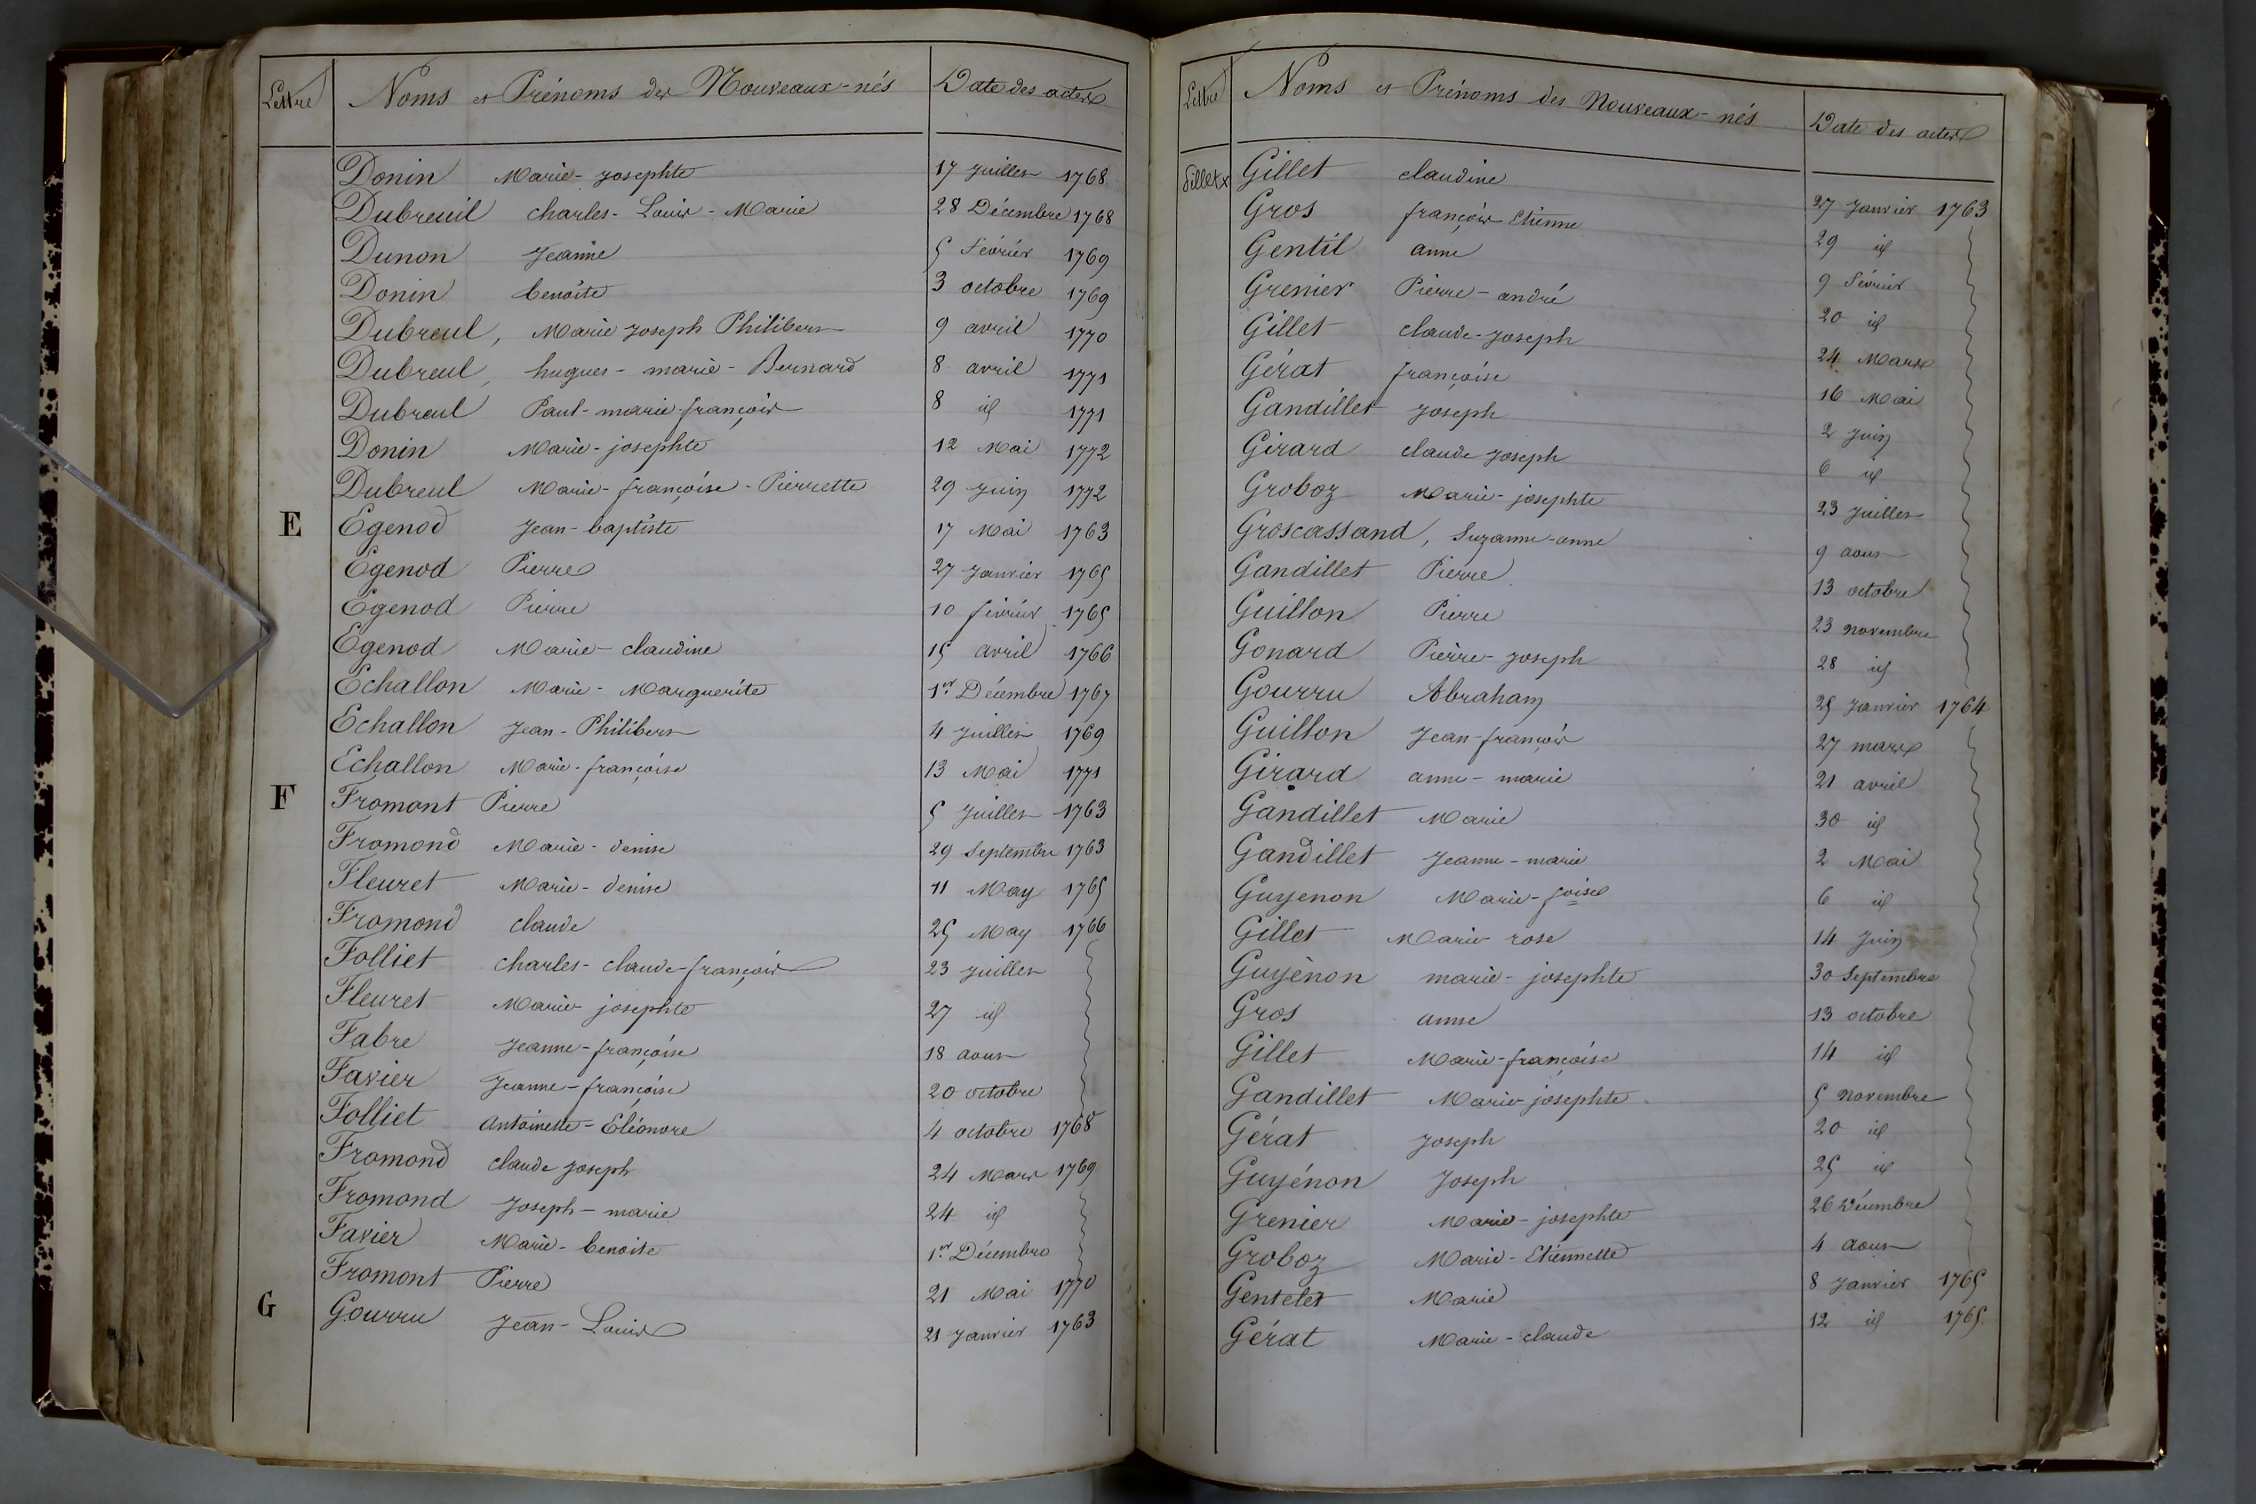 Lettre Noms et Prénoms des Nouveaux-nés Date des actes
Donin Marie-Josephte 17 Juillet 1768
Dubreuil charles-Louis-Marie 28 Décembre 1768
Dunon Jeanne 5 février 1769
Donin benoîte 3 octobre 1769
Dubreul, Marie Joseph Philibert 9 avril 1770
Dubreul, hugues-marie-Bernard 8 avril 1771
Dubreul Paul-marie-françois 8 id 1771
Donin Marie-josephte 12 Mai 1772
Dubreul Marie-françoise-Pierrette 29 Juin 1772
E Egenod Jean-baptiste 17 Mai 1763
Egenod Pierre 27 Janvier 1765
Egenod Pierre 10 février 1765
Egenod Marie-claudine 15 avril 1766
Echallon Marie-Marguerite 1er Décembre 1767
Echallon Jean-Philibert 4 Juillet 1769
Echallon Marie-françoise 13 Mai 1771
F Fromont Pierre 5 Juillet 1763
Fromond Marie-denise 29 Septembre 1763
Fleuret Marie-denise 11 May 1765
Fromond claude 25 May 1766
Folliet charles-claude-françois 23 Juillet
Fleuret Marie-josephte 27 id
Fabre Jeanne-françoise 18 aout
Favier Jeanne-françoise 20 octobre
Folliet Antoinette-Eléonore 4 octobre 1768
Fromond claude joseph 24 Mars 1769
Fromond Joseph-marie 24 id
Favier Marie-benoite 1er Décembre
Fromont Pierre 21 Mai 1770
G Gourru Jean-Louis 21 Janvier 1763
Lettre Noms et Prénoms des Nouveaux-nés Date des actes
Gillet claudine 27 Janvier 1763
Gros françois-Etienne 29 id
Gentil anne 9 février
Grenier Pierre-andré 20 id
Gillet claude-Joseph 24 Mars
Gérat françoise 16 Mai
Gandillet Joseph 2 Juin
Girard claude Joseph 6 id
Groboz Marie-josephte 23 Juillet
Groscassand, Suzanne-anne 9 aout
Gandillet Pierre 13 octobre
Guillon Pierre 23 novembre
Gonard Pierre-Joseph 28 id
Gourru Abraham 25 Janvier 1764
Guillon Jean-françois 27 mars
Girard anne-marie 21 avril
Gandillet Marie 30 id
Gandillet Jeanne-marie 2 Mai
Guyenon Marie-foise 6 id
Gillet Marie rose 14 Juin
Guyénon marie-josephte 30 Septembre
Gros anne 13 octobre
Gillet Marie-françoise 14 id
Gandillet Marie-josephte 5 novembre
Gérat Joseph 20 id
Guyénon Joseph 25 id
Grenier Marie-josephte 26 Décembre
Groboz Marie-Etiennette 4 Aout
Gentelet Marie 8 Janvier 1765
Gérat Marie-claude 12 id 1765